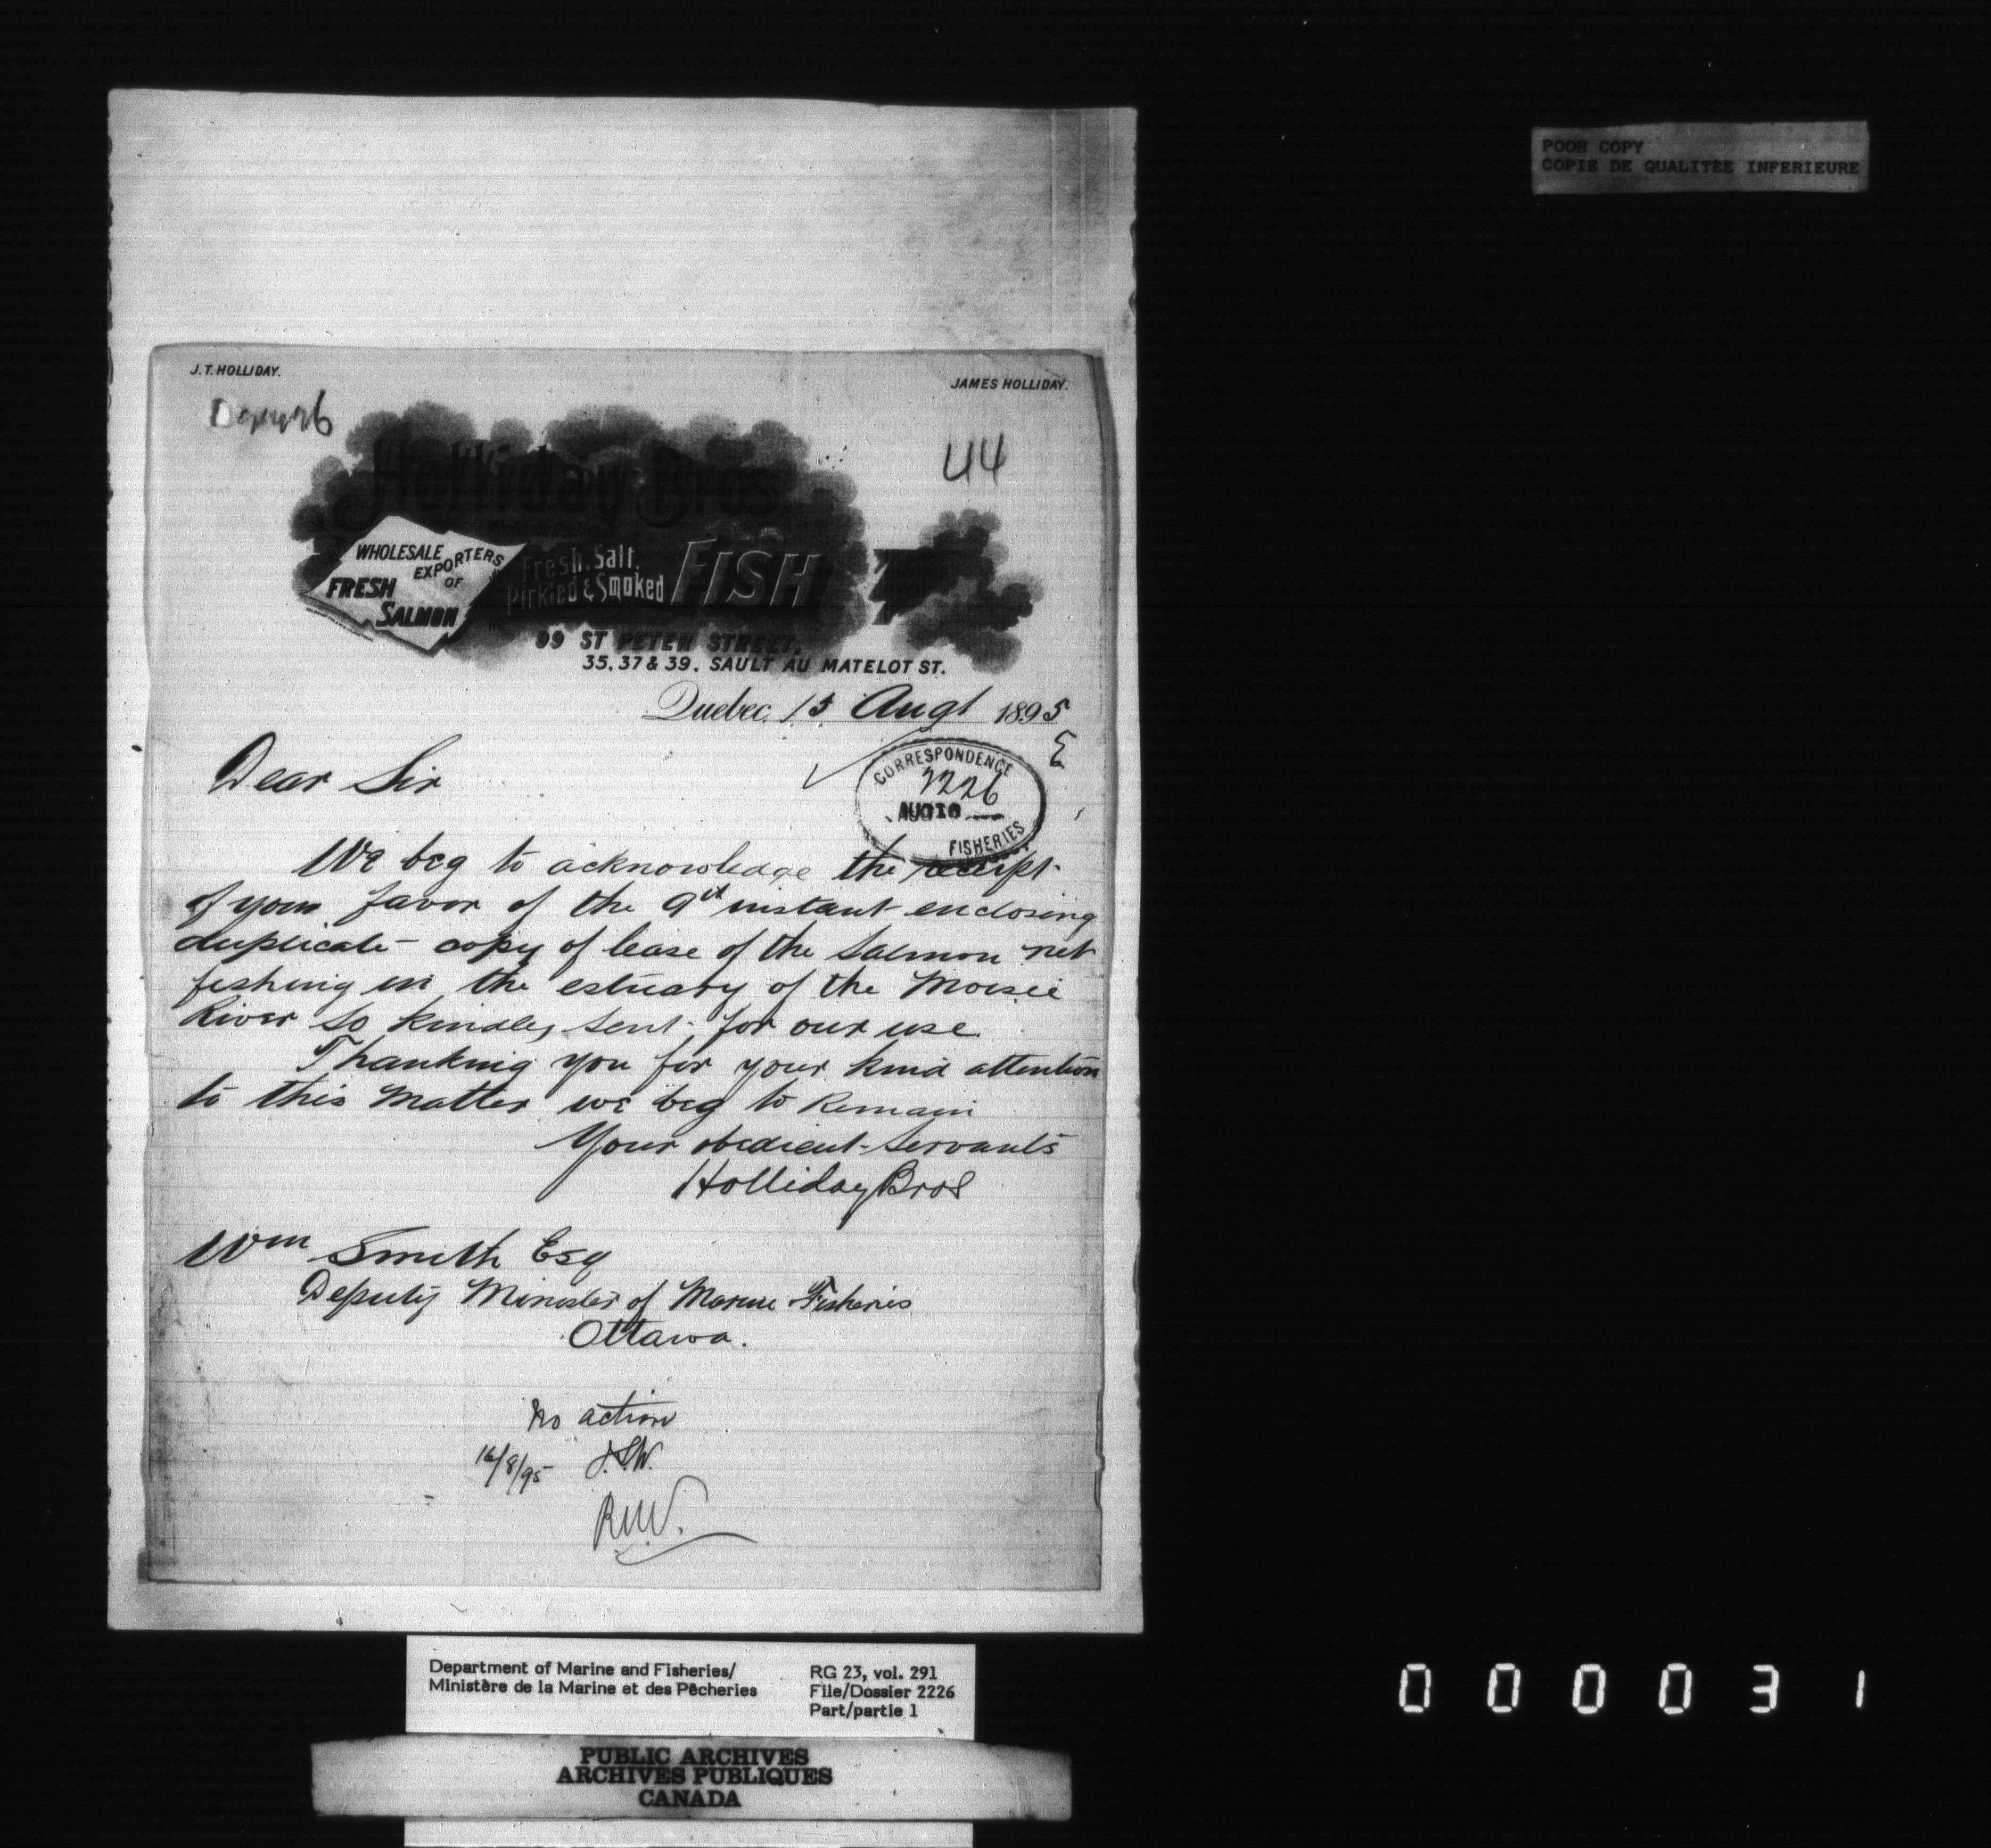 POOR COPY
COPIE DE QUALITEE INFERIEURE
J.T. HOLLIDAY.
JAMES HOLLIDAY.
44
Holliday Bros.
WHOLESALE EXPORTERS OF
FRESH SALMON
Fresh, Salt,
Pickled & Smoked FISH
99 ST PETER STREET,
35, 37 & 39, SAULT AU MATELOT ST.
Quebec, 15 Augt 1895
E
CORRESPONDENCE
2226
AUG 16
FISHERIES
Dear Sir
We beg to acknowledge the receipt
of your favor of the 9th instant enclosing
duplicate copy of lease of the Salmon net
fishing in the estuary of the Moisie
River so kindly sent for our use.
Thanking you for your kind attention
to this matter we beg to Remain
Your obedient Servants
Holliday Bros
Wm Smith Esq
Deputy Minister of Marine Fisheries
Ottawa.
No action
16/8/95 J.S.W.
R.W.
Department of Marine and Fisheries/
Ministère de la Marine et des Pêcheries
RG 23, vol. 291
File/Dossier 2226
Part/partie 1
PUBLIC ARCHIVES
ARCHIVES PUBLIQUES
CANADA
000031